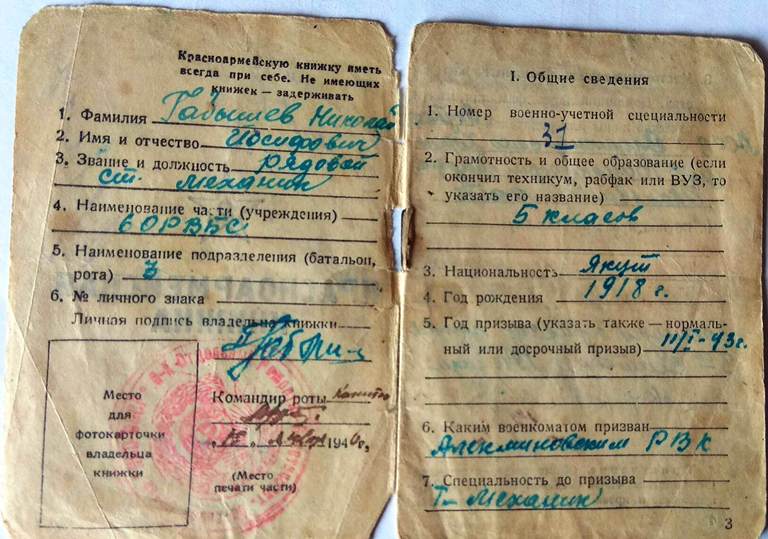 Красноармейскую книжку иметь
всегда при себе. Не имеющих
книжек — задерживать
1. Фамилия Габышев Николай
2. Имя и отчество Иосифович
3. Звание и должность рядовой
ст. механик
4. Наименование части (учреждения)
6 ОРВБС
5. Наименование подразделения (батальон,
рота) 3
6. № личного знака
Личная подпись владельца книжки
Место
для
фотокарточки
владельца
книжки
Командир роты
194
(Место
печати части)
I. Общие сведения
1. Номер военно-учетной специальности
31
2. Грамотность и общее образование (если
окончил техникум, рабфак или ВУЗ, то
указать его название)
5 класов
3. Национальность Якут
4. Год рождения 1918 г.
5. Год призыва (указать также — нормаль-
ный или досрочный призыв) 11/I-43г.
6. Каким военкоматом призван
Алекминовским РВК
7. Специальность до призыва
Т- механик
3